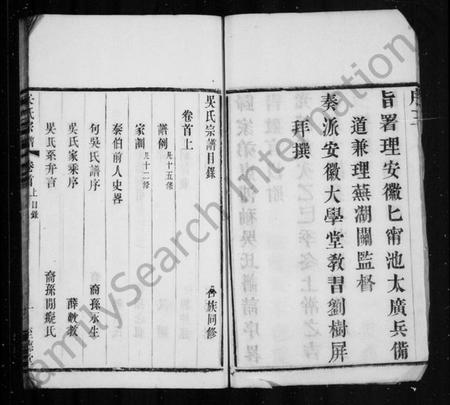 旨署理安徽七甯池太廣兵備
道兼理蕪湖關監督
奏派安徽大學堂敎習劉樹屏
拜撰
吳氏宗譜目錄
合族同修
卷首上
譜例 凡十五條
家訓 凡十二條
泰伯前人史畧
句吳氏譜序 裔孫永生
吳氏家乘序 薛敎
吳氏系弁言 裔孫閒癡氏
吳氏宗譜 卷首上 目錄 一
FamilySearch International